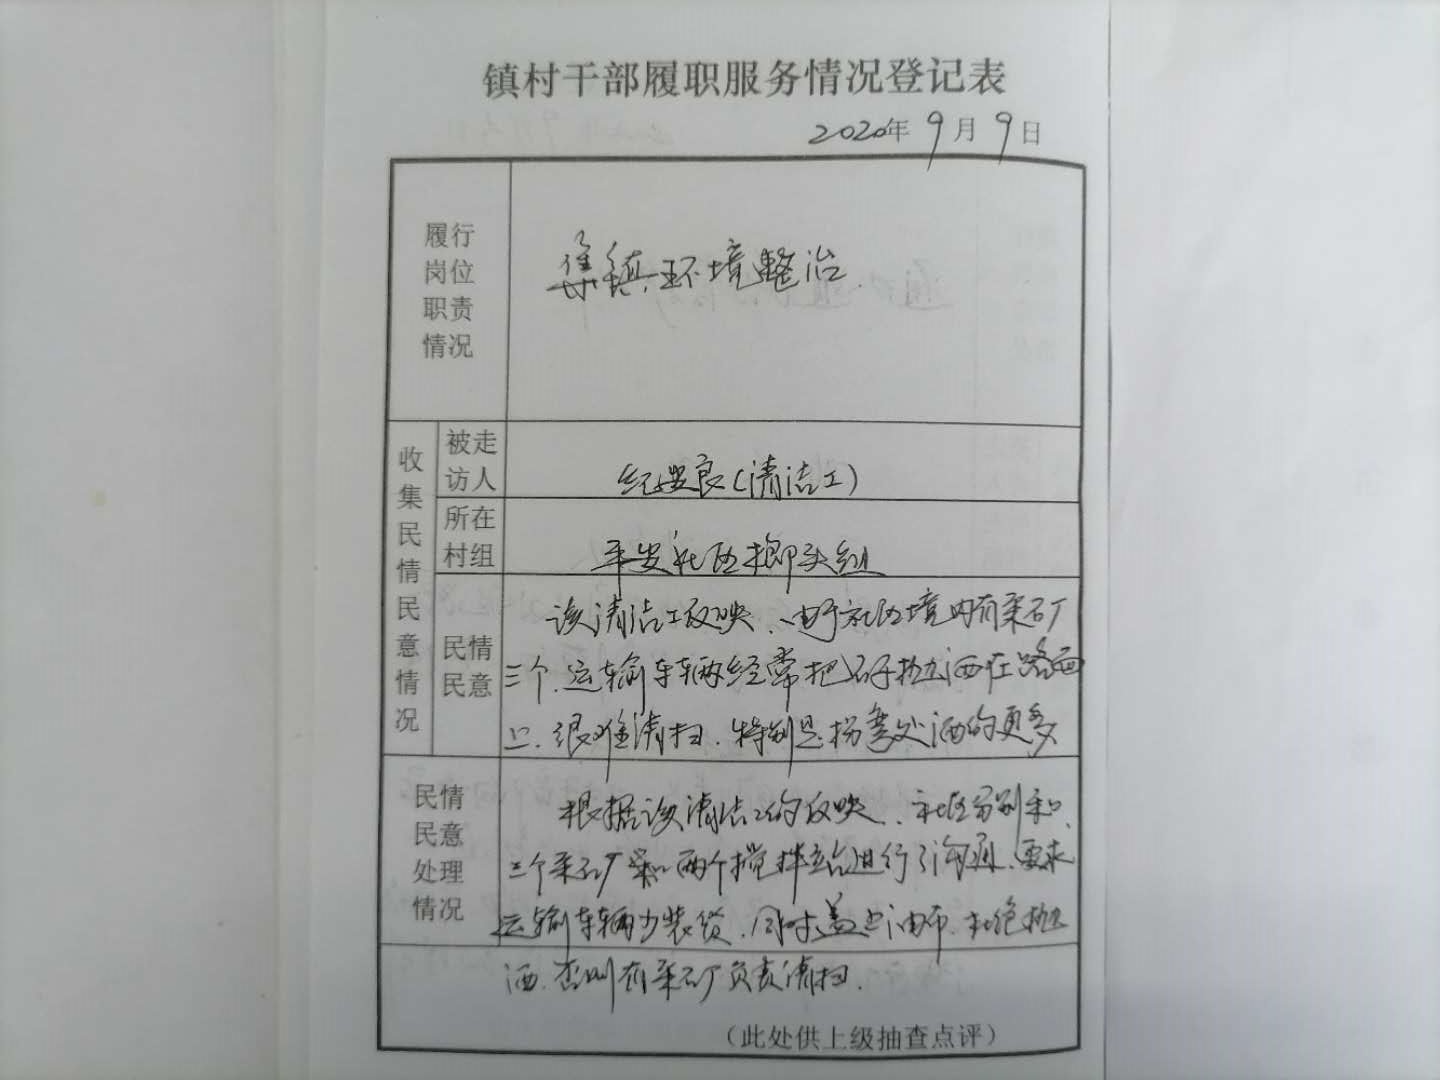 镇村干部履职服务情况登记表
2020年9月9日
履行
岗位
职责
情况
集镇环境整治.
收集民情民意情况
被走
访人
纪 良(清洁工)
所在
村组
平安社区榔头组
民情
民意
该清洁工反映、由于社区境内有采石厂
三个.运输车辆经常把石子抛洒在路面
上.很难清扫.特别是拐弯处洒的更多
民情
民意
处理
情况
根据该清洁工的反映、社区分别和
三个采石厂和两个搅拌站进行了沟通、要求
运输车辆少装货.同时盖上油布.杜绝抛
洒.否则有采石厂负责清扫.
（此处供上级抽查点评）